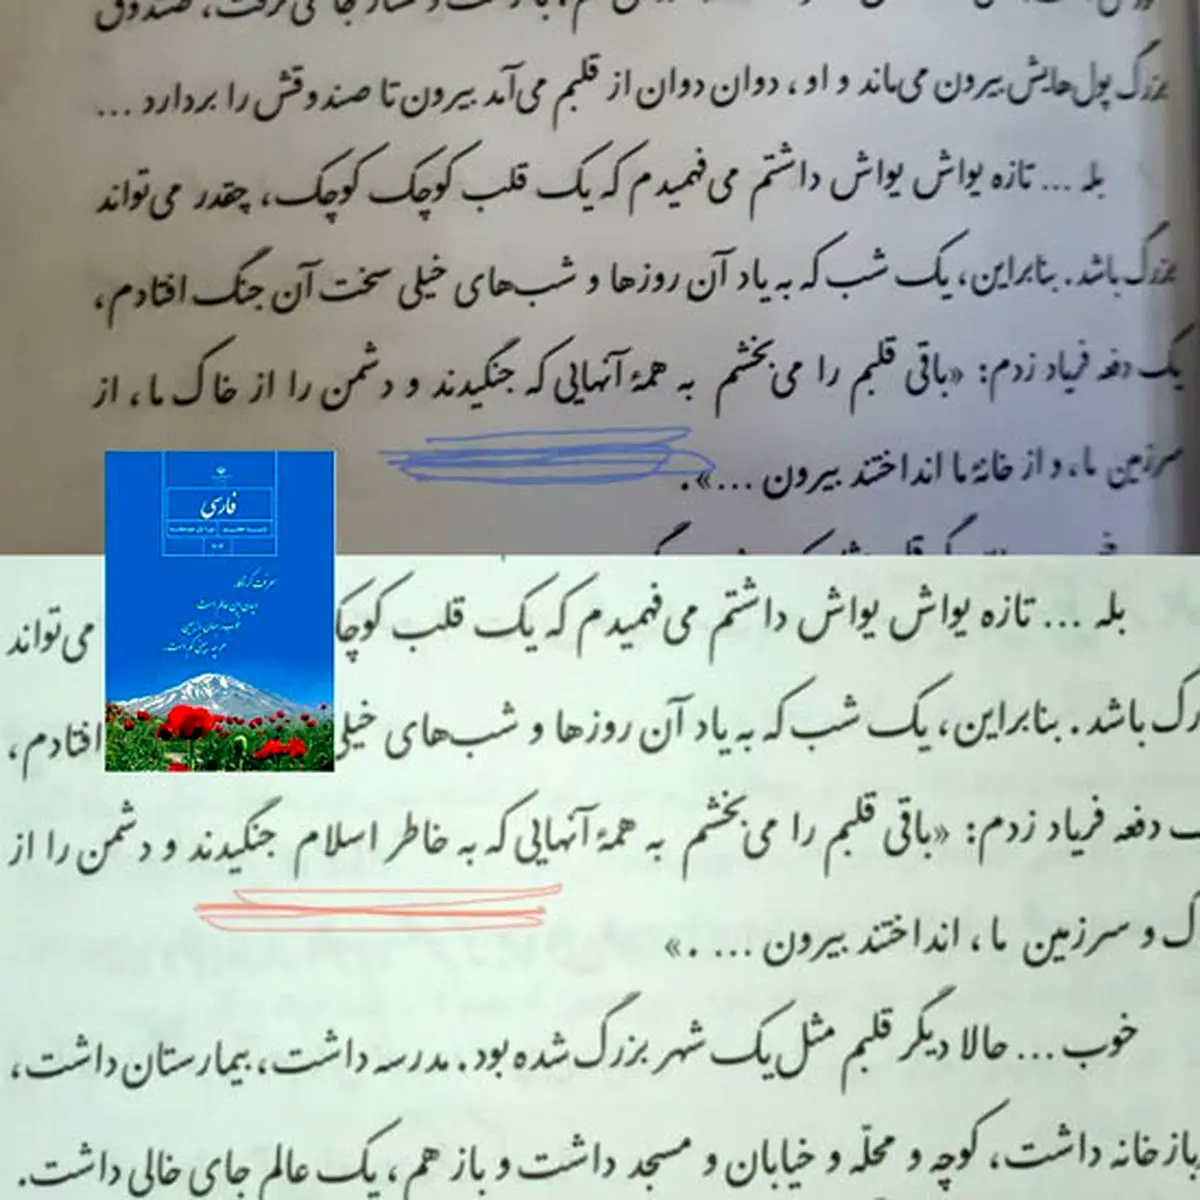 بزرگ پول‌هایش بیرون می‌ماند و او، دوان دوان از قلبم می‌آمد بیرون تا صندوقش را بردارد ...
بله ... تازه یواش یواش داشتم می‌فهمیدم که یک قلب کوچک کوچک، چقدر می‌تواند
بزرگ باشد. بنابراین، یک شب که به یاد آن روزها و شب‌های خیلی سخت آن جنگ افتادم،
یک دفعه فریاد زدم: «باقی قلبم را می‌بخشم به همهٔ آنهایی که جنگیدند و دشمن را از خاک ما، از
سرزمین ما، و از خانهٔ ما انداختند بیرون ...».
فارسی
بله ... تازه یواش یواش داشتم می‌فهمیدم که یک قلب می‌تواند
باشد. بنابراین، یک شب که به یاد آن روزها و شب‌های خیلی افتادم،
دفعه فریاد زدم: «باقی قلبم را می‌بخشم به همهٔ آنهایی که به خاطر اسلام جنگیدند و دشمن را از
و سرزمین ما، انداختند بیرون ... .»
خوب ... حالا دیگر قلبم مثل یک شهر بزرگ شده بود. مدرسه داشت، بیمارستان داشت،
داشت، کوچه و محلّه و خیابان و مسجد داشت و باز هم، یک عالم جای خالی داشت.